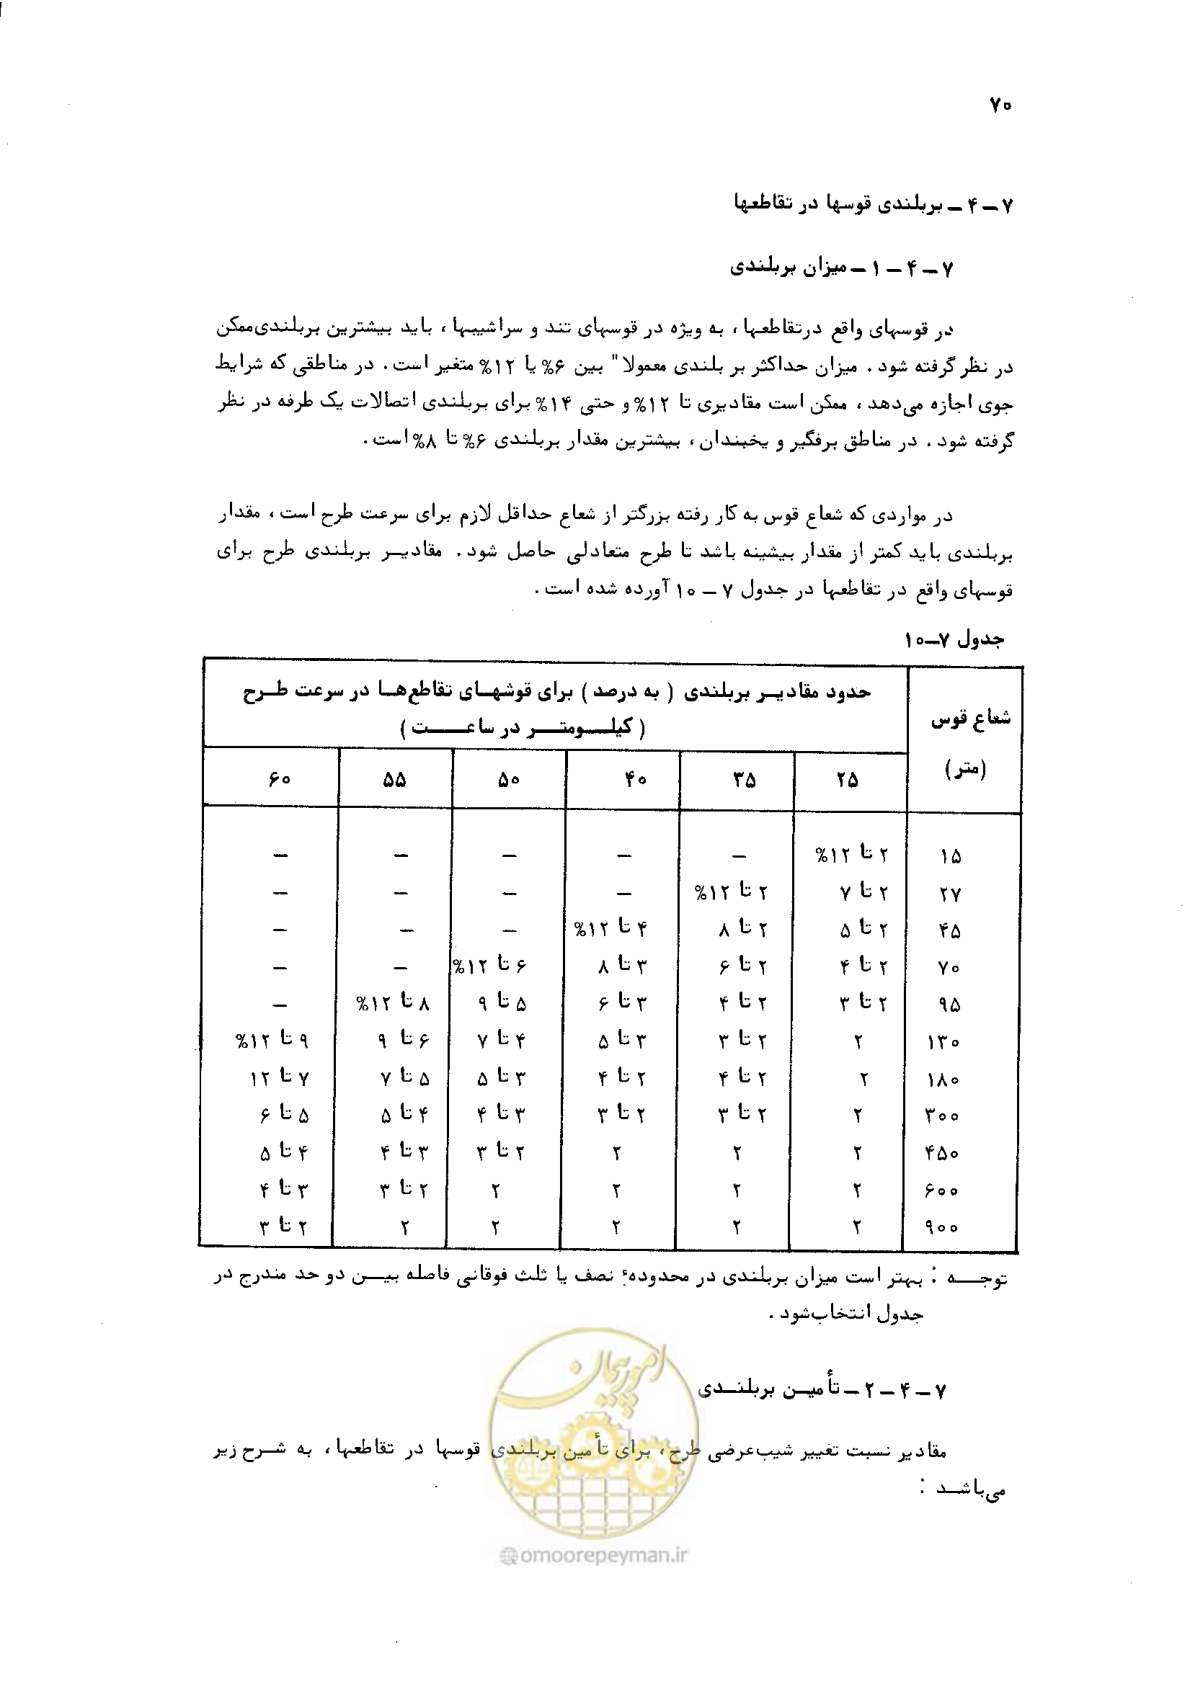 ۷۰
۷ – ۴ – بربلندی قوسها در تقاطعها
۷ – ۴ – ۱ – میزان بربلندی
در قوسهای واقع درتقاطعها ، به ویژه در قوسهای تند و سراشیبها ، باید بیشترین بربلندی‌ممکن
در نظر گرفته شود . میزان حداکثر بر بلندی معمولا" بین ۶% یا ۱۲% متغیر است . در مناطقی که شرایط
جوی اجازه می‌دهد ، ممکن است مقادیری تا ۱۲% و حتی ۱۴% برای بربلندی اتصالات یک طرفه در نظر
گرفته شود . در مناطق برفگیر و یخبندان ، بیشترین مقدار بربلندی ۶% تا ۸% است .
در مواردی که شعاع قوس به کار رفته بزرگتر از شعاع حداقل لازم برای سرعت طرح است ، مقدار
بربلندی باید کمتر از مقدار بیشینه باشد تا طرح متعادلی حاصل شود . مقادیر بربلندی طرح برای
قوسهای واقع در تقاطعها در جدول ۷ – ۱۰ آورده شده است .
جدول ۷–۱۰
شعاع قوس (متر) | حدود مقادیر بربلندی ( به درصد ) برای قوشهای تقاطع‌ها در سرعت طرح
( کیلومتر در ساعت )
۲۵ | ۳۵ | ۴۰ | ۵۰ | ۵۵ | ۶۰
۱۵ | ۲ تا ۱۲% | – | – | – | – | –
۲۷ | ۲ تا ۷ | ۲ تا ۱۲% | – | – | – | –
۴۵ | ۲ تا ۵ | ۲ تا ۸ | ۴ تا ۱۲% | – | – | –
۷۰ | ۲ تا ۴ | ۲ تا ۶ | ۳ تا ۸ | ۶ تا ۱۲% | – | –
۹۵ | ۲ تا ۳ | ۲ تا ۴ | ۳ تا ۶ | ۵ تا ۹ | ۸ تا ۱۲% | –
۱۳۰ | ۲ | ۲ تا ۳ | ۳ تا ۵ | ۴ تا ۷ | ۶ تا ۹ | ۹ تا ۱۲%
۱۸۰ | ۲ | ۲ تا ۴ | ۲ تا ۴ | ۳ تا ۵ | ۵ تا ۷ | ۷ تا ۱۲
۳۰۰ | ۲ | ۲ تا ۳ | ۲ تا ۳ | ۳ تا ۴ | ۴ تا ۵ | ۵ تا ۶
۴۵۰ | ۲ | ۲ | ۲ | ۲ تا ۳ | ۳ تا ۴ | ۴ تا ۵
۶۰۰ | ۲ | ۲ | ۲ | ۲ | ۲ تا ۳ | ۳ تا ۴
۹۰۰ | ۲ | ۲ | ۲ | ۲ | ۲ | ۲ تا ۳
توجه : بهتر است میزان بربلندی در محدودهٔ نصف یا ثلث فوقانی فاصله بین دو حد مندرج در
جدول انتخاب‌شود .
۷ – ۴ – ۲ – تأمین بربلندی
مقادیر نسبت تغییر شیب‌عرضی طرح ، برای تأمین بربلندی قوسها در تقاطعها ، به شرح زیر
می‌باشد :
امور پیمان
@omoorepeyman.ir